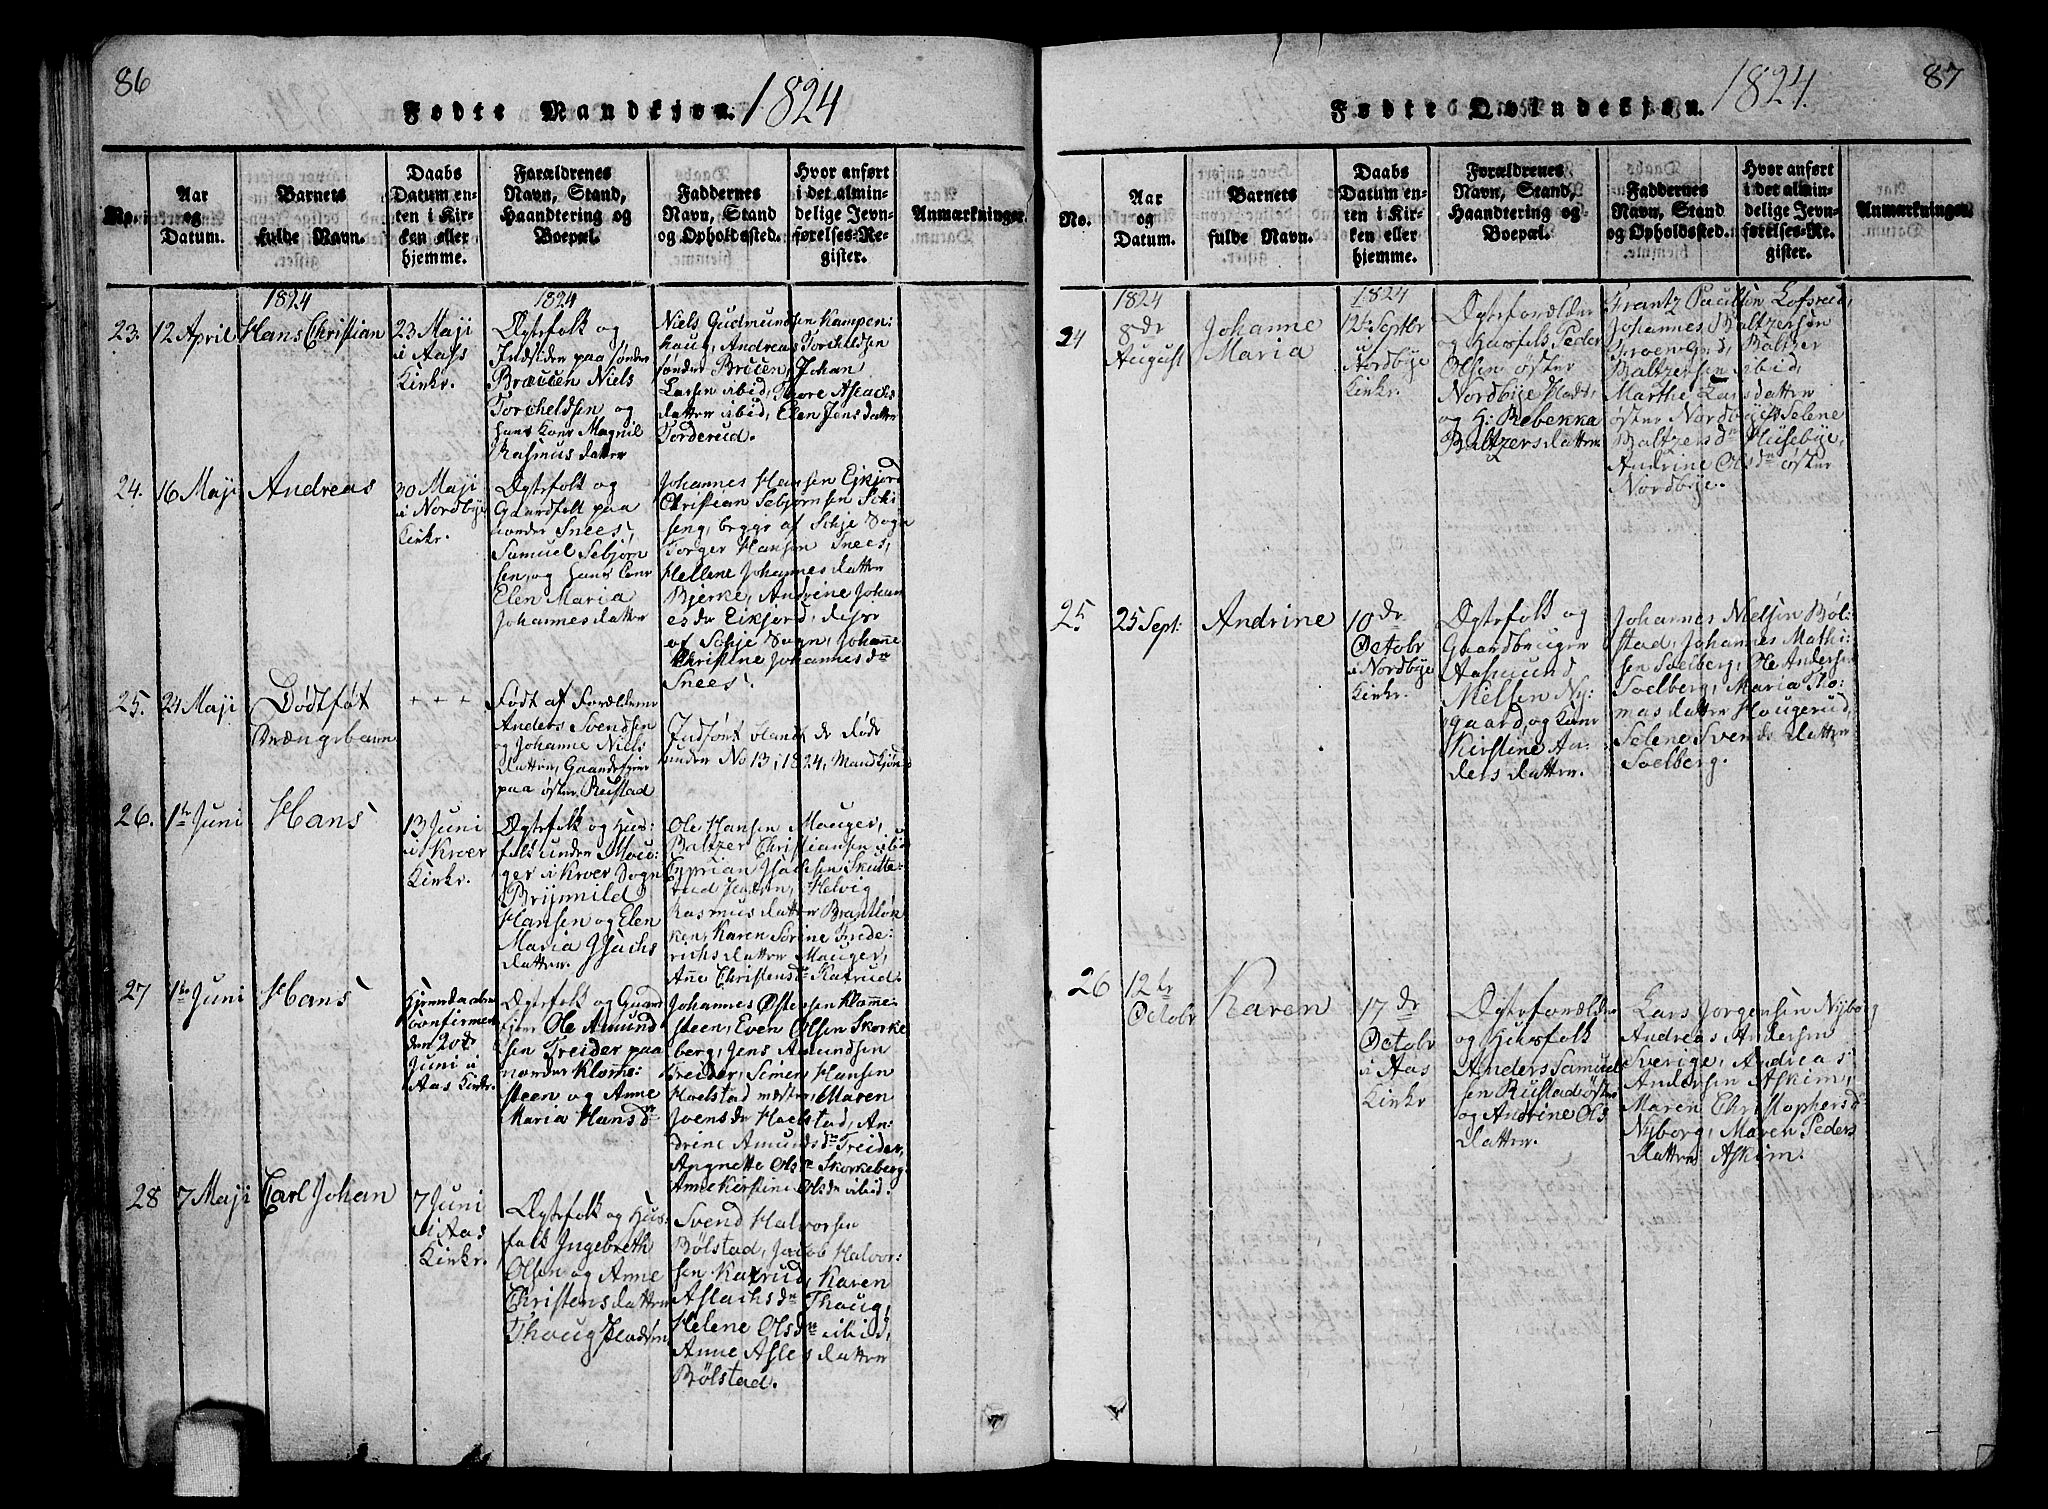 86
Fødte Mandkjøn. 1824
No.
Aar
og
Datum.
Barnets
fulde Navn.
Daabs
Datum en-
ten i Kir-
ken eller
hjemme.
Forældrenes
Navn, Stand,
Haandtering og
Boepæl.
Faddernes
Navn, Stand
og Opholdssted.
Hvor anført
i det almin-
delige Jevn-
førelses-Re-
gister.
Anmærkninger.
1824
1824
23.
12 April
Hans Christian
23 Maji
i Aass
Kirke.
Ægtefolk og
Indsidere paa sønder
Brøcen Niels
Torcheldsen og
hans Kone Magnil
Rasmusdatter
Niels Gudmundsen Kampen:
haug, Andreas Torcheldsen
sønder Brøcen, Johan
Larsen ibid, Thore Aslachs
datter ibid, Elen Jensdatter
Torderud.
24.
16 Maji
Andreas
30 Maji
i Nordbye
Kirke.
Ægtefolk og
Gaardfolk paa
norder Snees,
Samuel Sebjørn
sen, og hans Cone
Elen Maria
Johannesdatter
Johannes Hansen Ejkjord
Christian Sebjørnsen Schi
seng, begge af Schje Sogn
Torger Hansen Snees,
Hellene Johannesdatter
Bjerke, Andrine Johan
esdr Eikjord, disse
af Schje Sogn, Johanne
Christine Johannesdr
Snees.
25.
24 Maji
Dødtføt
Drængebarn
+ + +
Født af Forældrene
Anders Svendsen
og Johanne Niels
datter, Gaardejere
paa øster Rustad
Indført blandt de døde
under No 13, 1824, Mandkjøn
26.
1te Juni
Hans
13 Juni
i Kroer
Kirke.
Ægtefolk og Hus:
folk under Mou:
ger i Kroer Sogn
Brynnild
Hansen og Elen
Maria Isachs
datter.
Ole Hansen Mouger,
Baltzer Christiansen ibid
Cyprian Isachsen Skutte:
rud Helvig
Rasmusdatter Brantløk
ken, Karen Sorine Frede:
richsdatter Mouger,
Anne Christensdr Katrud.
27
1te Juni
Hans
confirmeret
den 20de
Juni i
Aas Kirke.
Ægtefolk og Gaard
ejere Ole Amund
sen Treider paa
norder Klome:
steen og Anne
Maria Hansdr
Johannes Østensen Klomme:
steen, Even Olsen Skorke
berg, Jens Amundsen
Treider, Simen Hansen
Hoelstad mestre, Maren
Jvensdr Hoelstad, An:
drine Amundsdr Treider,
Angnette Olsdr Skorkeberg
Anne Kirstine Olsdr ibid.
28
7 Maji
Carl Johan
7 Juni
i Aas
Kirke.
Ægtefolk og Hus:
folk Ingebreth
Olsen og Anne
Christensdatter
Thoug
Svend Halvorsen
Bølstad, Jacob Halvor:
sen Katrud, Karen
Aslachsdr Thoug,
Helene Olsdr ibid,
Anne Aslesdatter
Bølstad.
87
Fødte Qvindekjøn. 1824.
No.
Aar
og
Datum.
Barnets
fulde Navn.
Daabs
Datum en-
ten i Kir-
ken eller
hjemme.
Forældrenes
Navn, Stand,
Haandtering og
Boepæl.
Faddernes
Navn, Stand
og Opholdssted.
Hvor anført
i det almin-
delige Jevn-
førelses-Re-
gister.
Anmærkninger.
1824
1824
24
8de
August
Johanne
Maria
12te Septbr
i
Nordbye
Kirke.
Ægteforældre
og Husfolk Peder
Olsen øster
Nordbye
og H: Rebekka
Baltzersdatter
Frantz Paulsen Lofsrud,
Johannes Baltzersen
Baltzer
Baltzersen ibid,
Marthe Larsdatter
øster Nordbye, Selene
Baltzersdr Husebye,
Andrine Olsdr øster
Nordbye.
25
25 Sept:
Andrine
10de
Octobr
i Nordbye
Kirke.
Ægtefolk og
Gaardbruger
Aasmund
Nielsen Ny:
gaard, og Kone
Kirstine An:
dersdatter.
Johannes Nielsen Bøl:
stad, Johannes Mathi:
sen Soelberg, Ole Andersen
Soelberg, Maria Tho:
masdatter Hougerud,
Selene Svendsdatter
Soelberg.
26
12te
Octobr
Karen
17de
Octobr
i Aas
Kirke
Ægteforældre
og Husfolk
Anders Samuel
sen Rustad øster
og Andrine Ols
datter.
Lars Jorgensen Nyborg
Andreas Andersen
Sverige, Andreas
Andersen Askim,
Maren Christophersdr
Nyborg, Maren Peders
datter Askim.